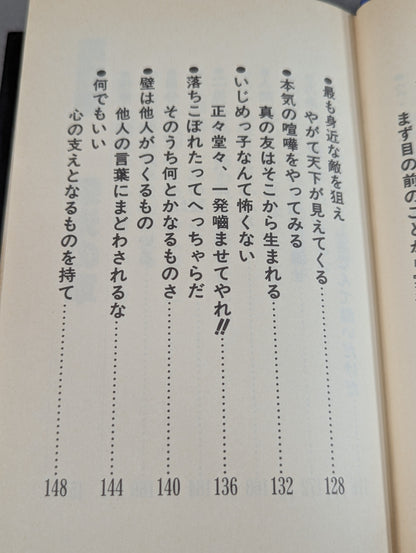 まず目の前のことから
●最も身近な敵を狙え
やがて天下が見えてくる……………128
●本気の喧嘩をやってみる
真の友はそこから生まれる……………132
●いじめっ子なんて怖くない
正々堂々、一発嚙ませてやれ!!……………136
●落ちこぼれたってへっちゃらだ
そのうち何とかなるものさ……………140
●壁は他人がつくるもの
他人の言葉にまどわされるな……………144
●何でもいい
心の支えとなるものを持て……………148